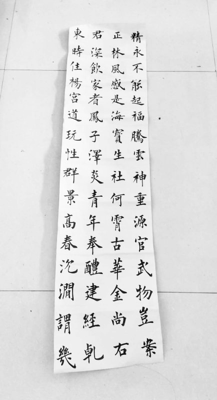 精永不能起福騰雲神重源官武物豈案
正林風感是海寶生社何霄古華金尚右
君深飲家者鳳子澤炎青年奉醴建經
東時住楊宮道玩性群景高春沉澗謂幾